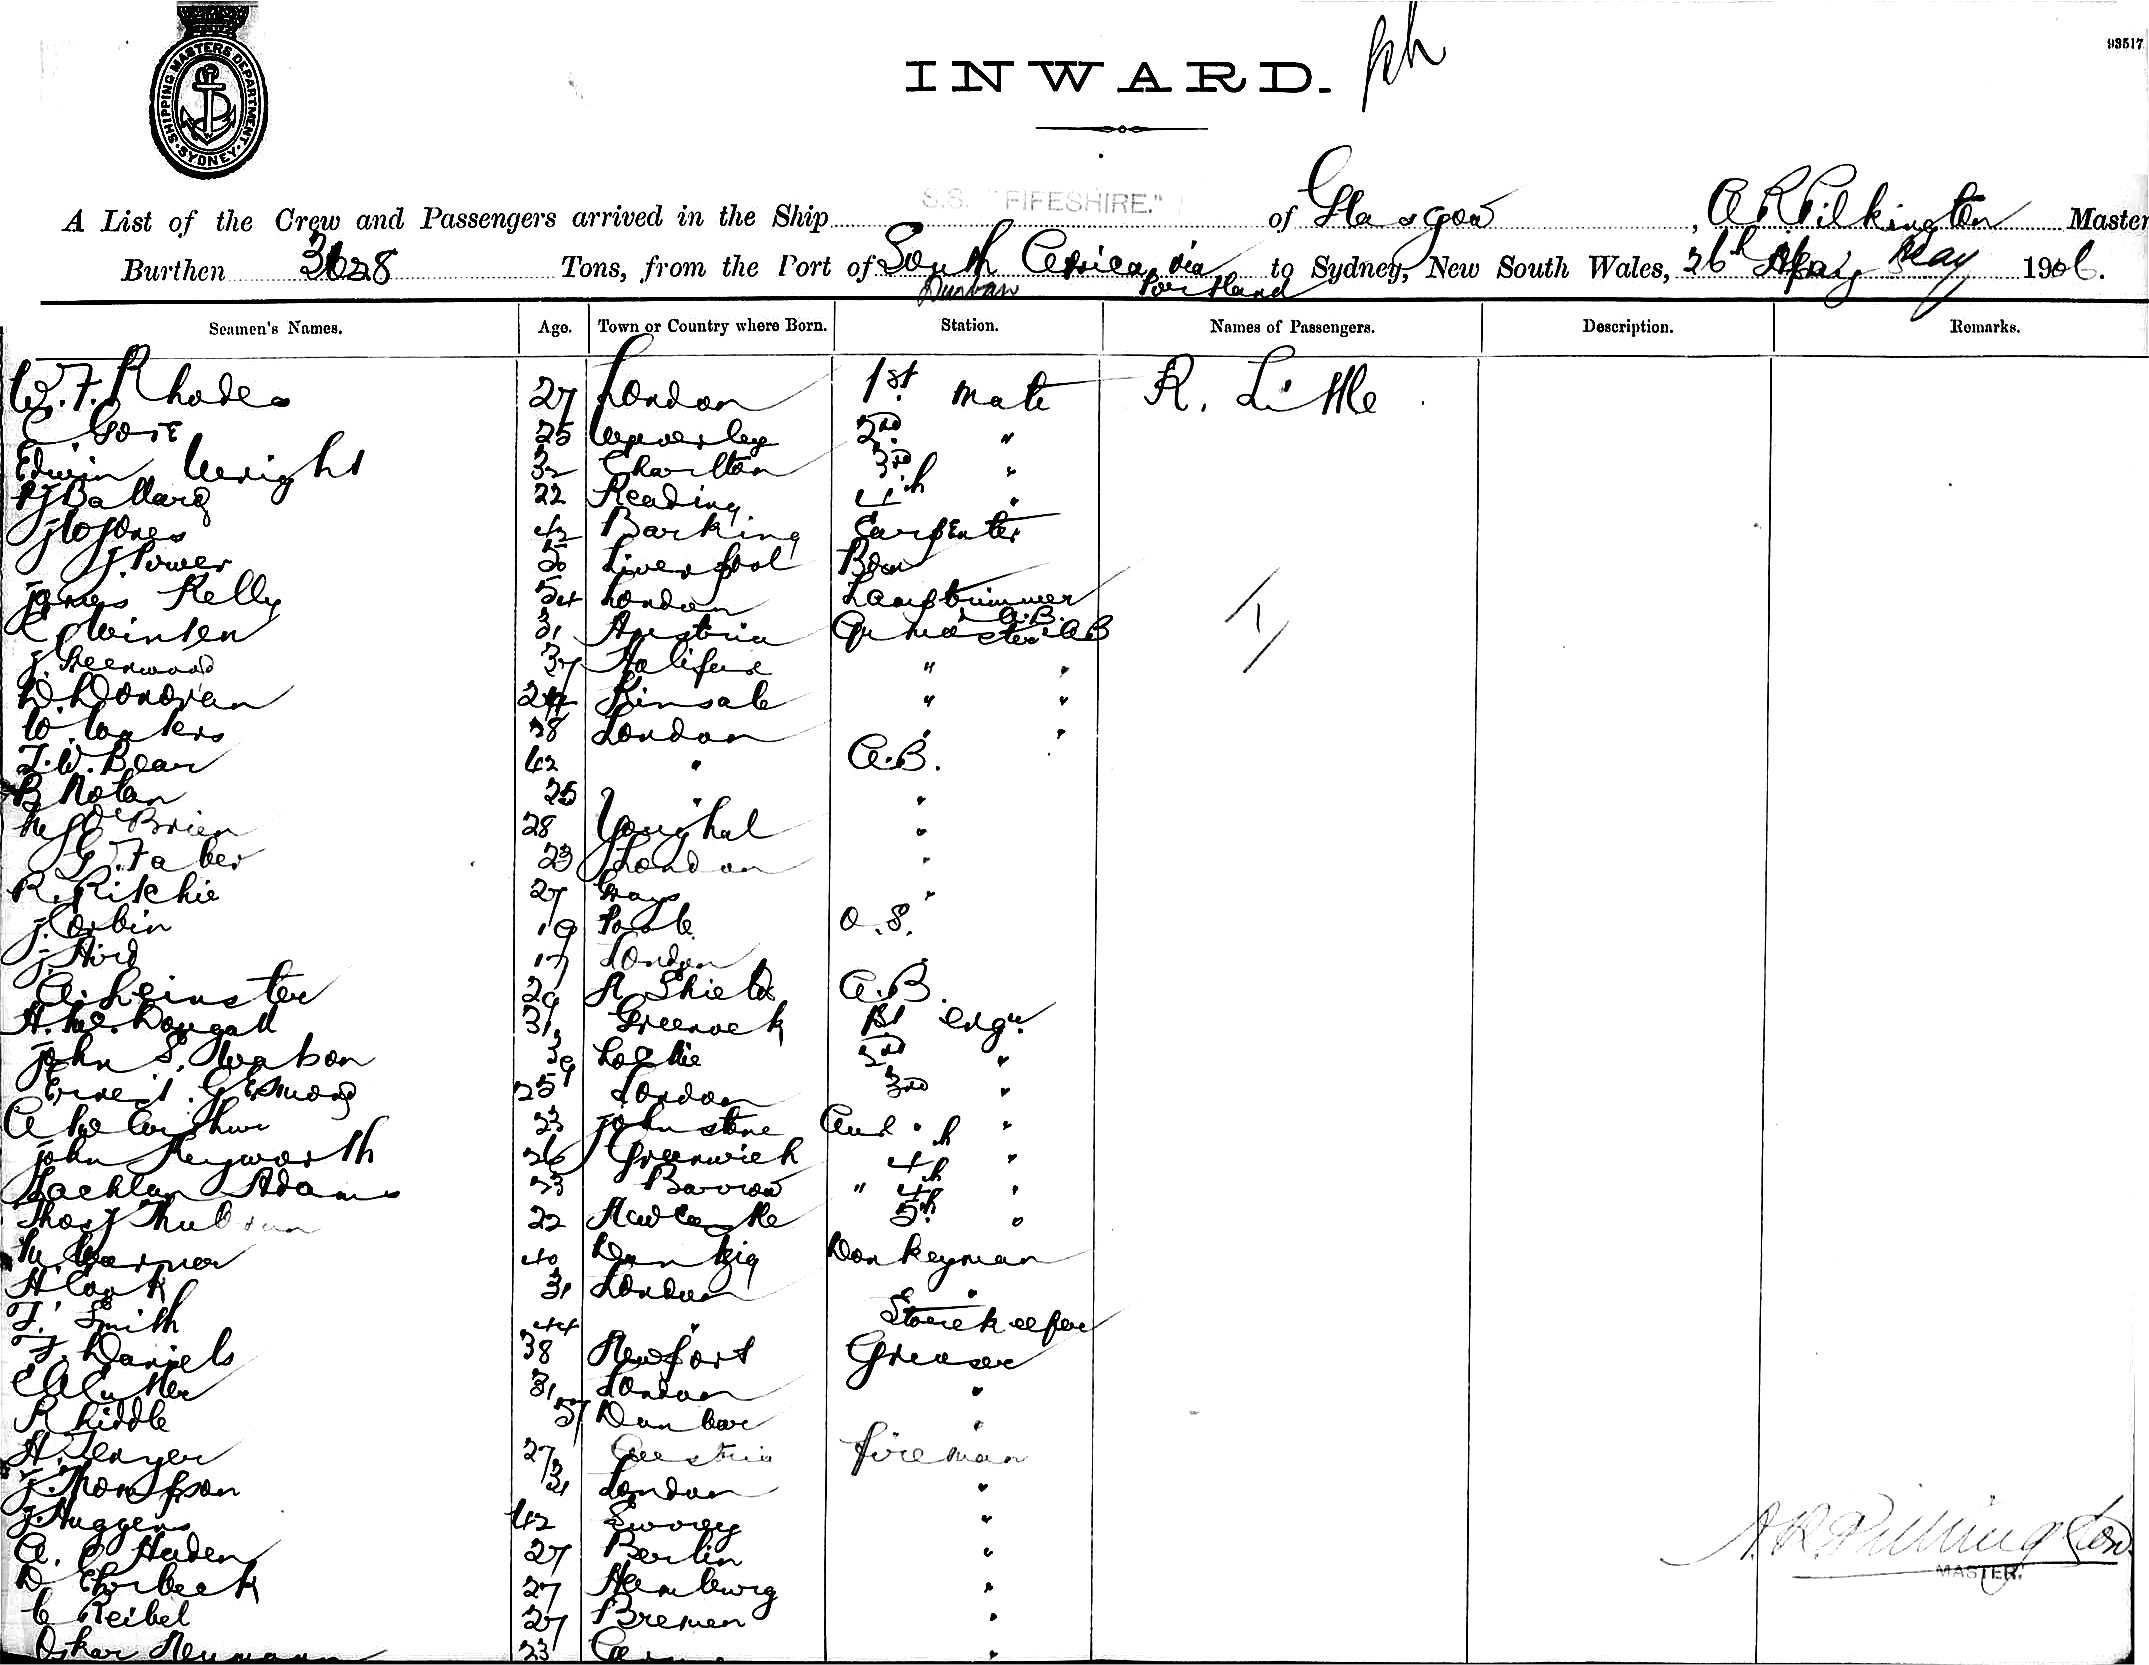 93517
INWARD.
SHIPPING MASTERS DEPARTMENT. SYDNEY.
A List of the Crew and Passengers arrived in the Ship S.S. "FIFESHIRE." of Glasgow, A R Pilkington Master
Burthen 3628 Tons, from the Port of South Africa via to Sydney, New South Wales, 26th May 1906.
Durban Portland
Seamen's Names. Age. Town or Country where Born. Station. Names of Passengers. Description. Remarks.
W. F. Rhodes 27 London 1st Mate R. Little
C. Gore 25 Waverley 2nd "
Edwin Wright 32 Charlton 3rd "
Ballard 22 Reading 4th "
Jones 42 Barking Carpenter
J. Power 50 Liverpool Bsn
James Kelly 54 London Lamptrimmer A.B.
Winsen 31 Austria Qr Master AB
J. Greenwood 37 Halifax " "
D. Donovan Kinsale " "
W. Waters 38 London " "
T. W. Bear 42 " A.B.
B Nolan 25 " "
O'Brien 28 Youghal "
G. Faber 23 London "
R. Ritchie 27 Grays "
J. Corbin 19 Poole O.S.
J. Hird 17 London
A. Leinster 29 N Shields A.B.
A. McDougall 31 Greenock 1st engr
John S. Watson 39 Lochie 2nd "
Ernest G Esmond 25 London 3rd "
A McArthur 23 Johnstone "
John Heyworth 26 Greenwich 4th "
Lachlan Adams 23 Barrow " 4th "
Thos J Thubrun 22 Newcastle 5th "
M. Warner 40 Dantzig Donkeyman
H Cook 31 London "
F. Smith 44 " Storekeeper
F. Daniels 38 Newport Greaser
Cutter 31 London "
R Liddle 57 Dunbar "
H. Tenyer 27 Austria fireman
J. Thompson 31 London "
J. Huggens 42 Surrey "
A. Haden 27 Berlin " A. R. Pilkington
D Ehrbeck 27 Hamburg " MASTER.
C Reibel 27 Bremen "
Oskar Neumann 23 "